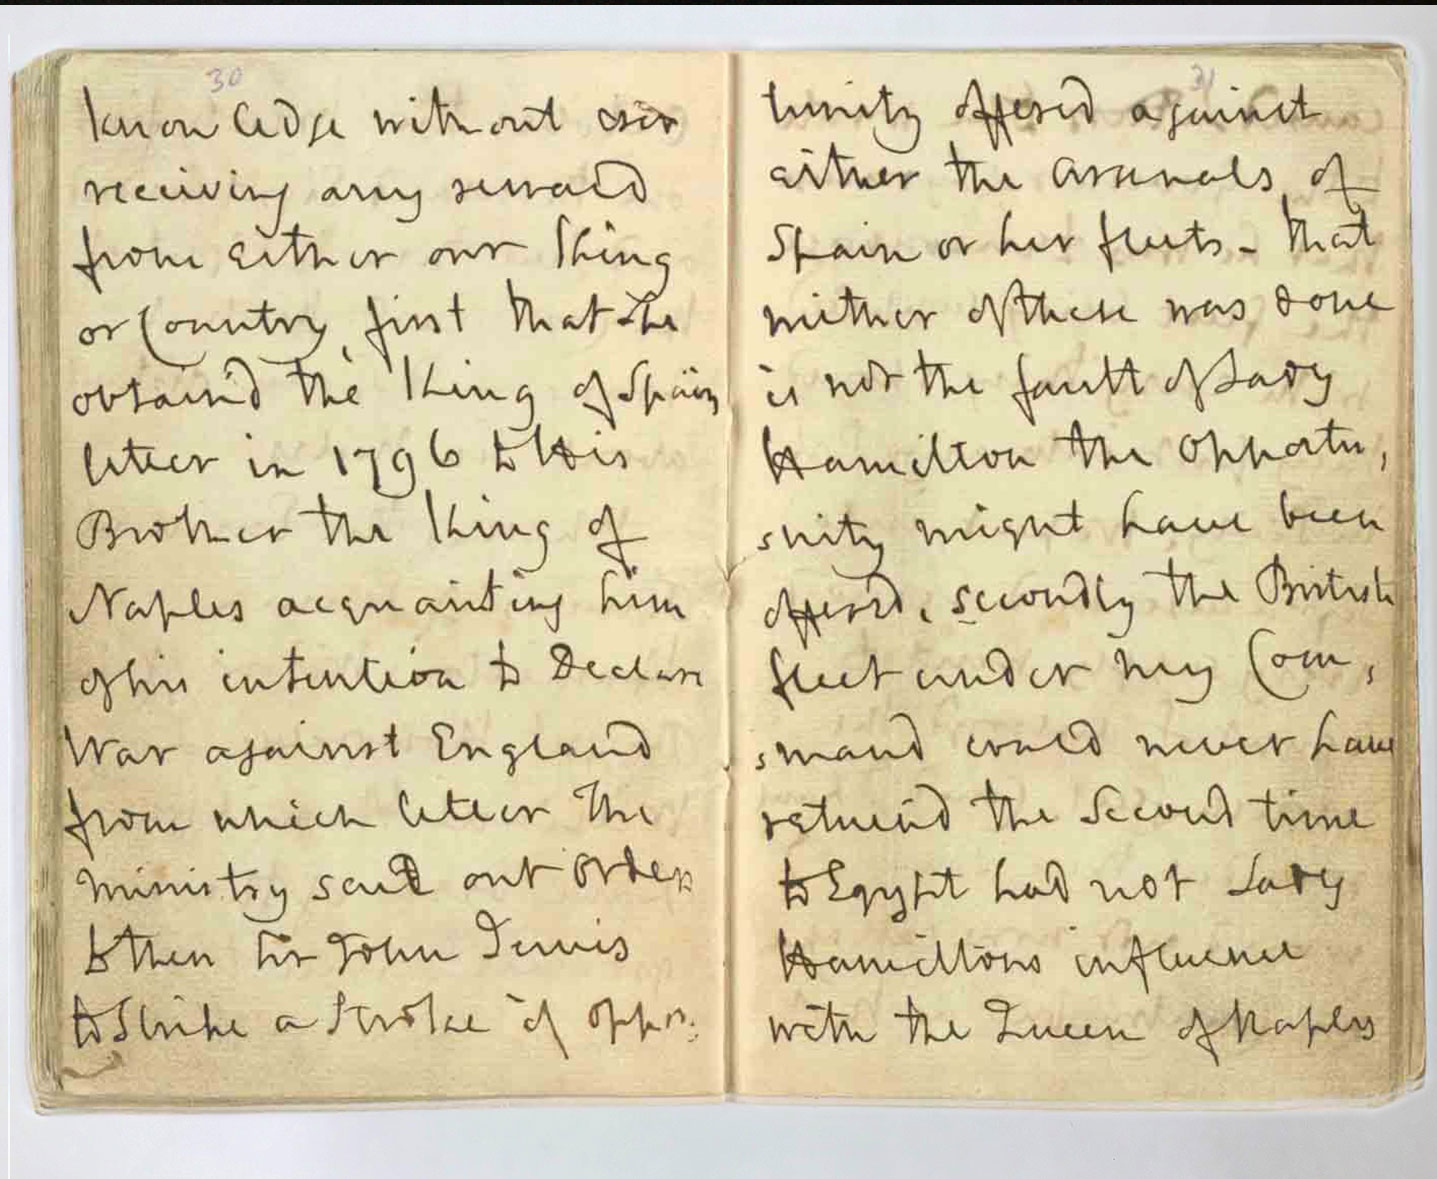 30
knowledge without
receiving any reward
from either our King
or Country, first that She
obtain'd the King of Spain
letter in 1796 to His
Brother the King of
Naples acquainting him
of his intention to Declare
War against England
from which letter the
Ministry sent out orders
to then Sir John Jervis
to Strike a Stroke if oppor:
31
tunity offered against
either the Arsenals of
Spain or her fleets - that
neither of these was done
is not the fault of Lady
Hamilton the opportu,
,nity might have been
offered, secondly the British
fleet under my Com,
,mand could never have
return'd the Second time
to Egypt had not Lady
Hamiltons influence
with the Queen of Naples